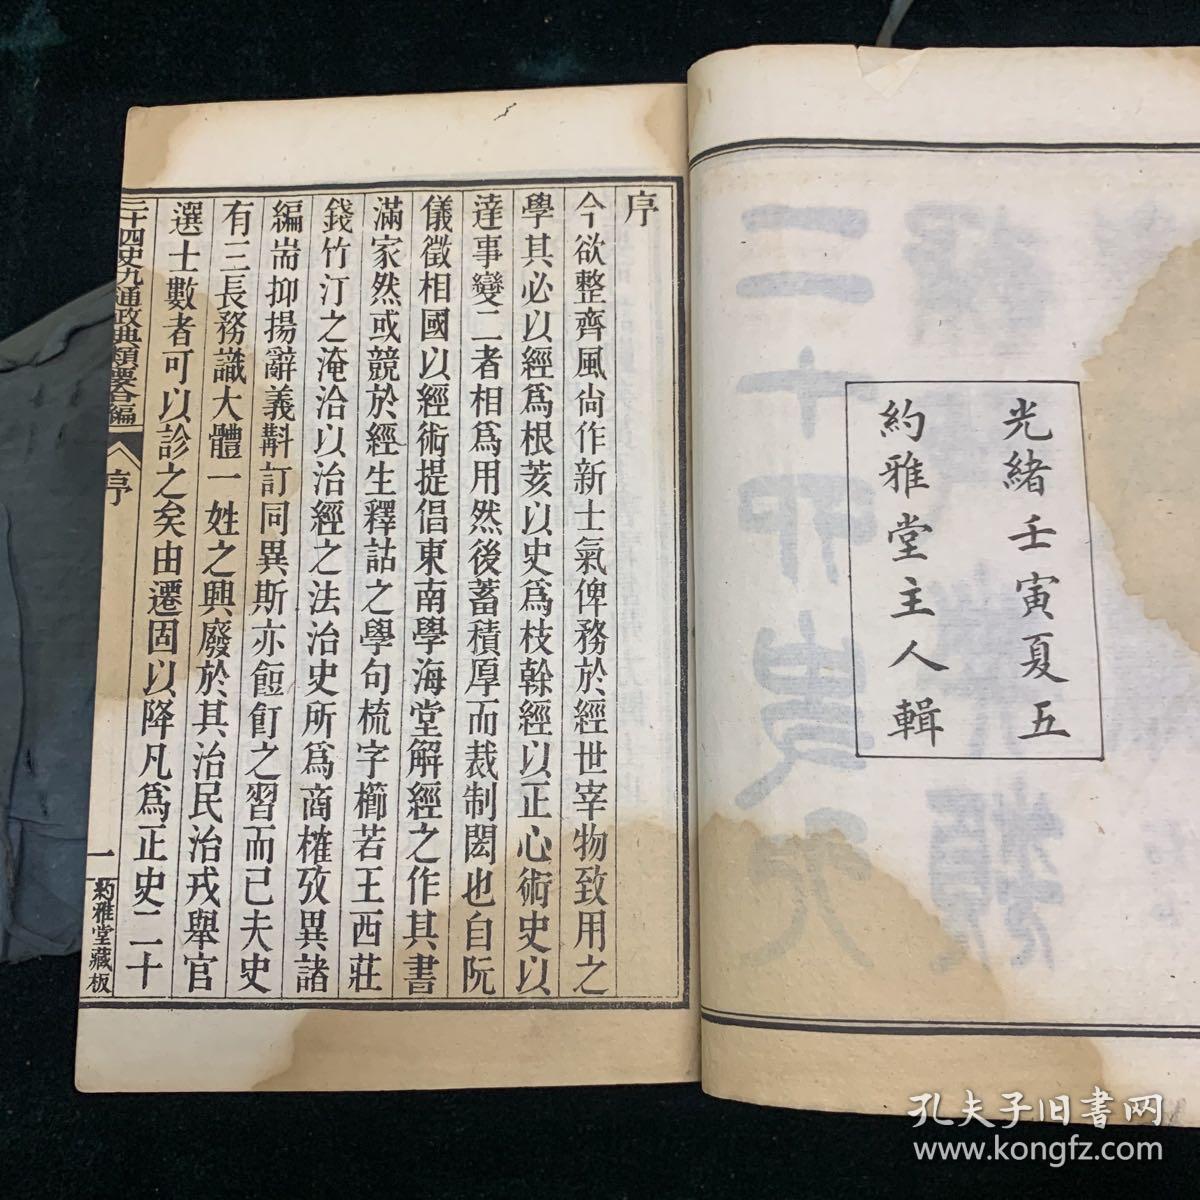 光緒壬寅夏五
約雅堂主人輯
序
今欲整齊風尙作新士氣俾務於經世宰物致用之
學其必以經爲根荄以史爲枝榦經以正心術史以
達事變二者相爲用然後蓄積厚而裁制閎也自阮
儀徵相國以經術提倡東南學海堂解經之作其書
滿家然或競於經生釋詁之學句梳字櫛若王西莊
錢竹汀之淹洽以治經之法治史所爲商榷攷異諸
編耑抑揚辭義斠訂同異斯亦飽飣之習而已夫史
有三長務識大體一姓之興廢於其治民治戎舉官
選士數者可以診之矣由遷固以降凡爲正史二十
二十四史九通政典類要合編
序
一
約雅堂藏板
孔夫子旧书网
www.kongfz.com